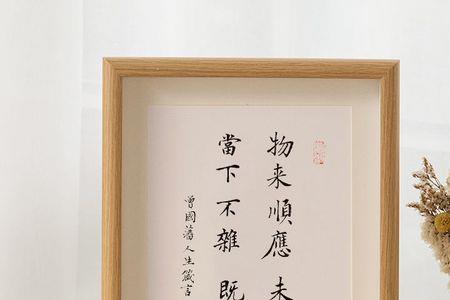 物来順應 未
當下不雜 既
曾國藩人生箴言